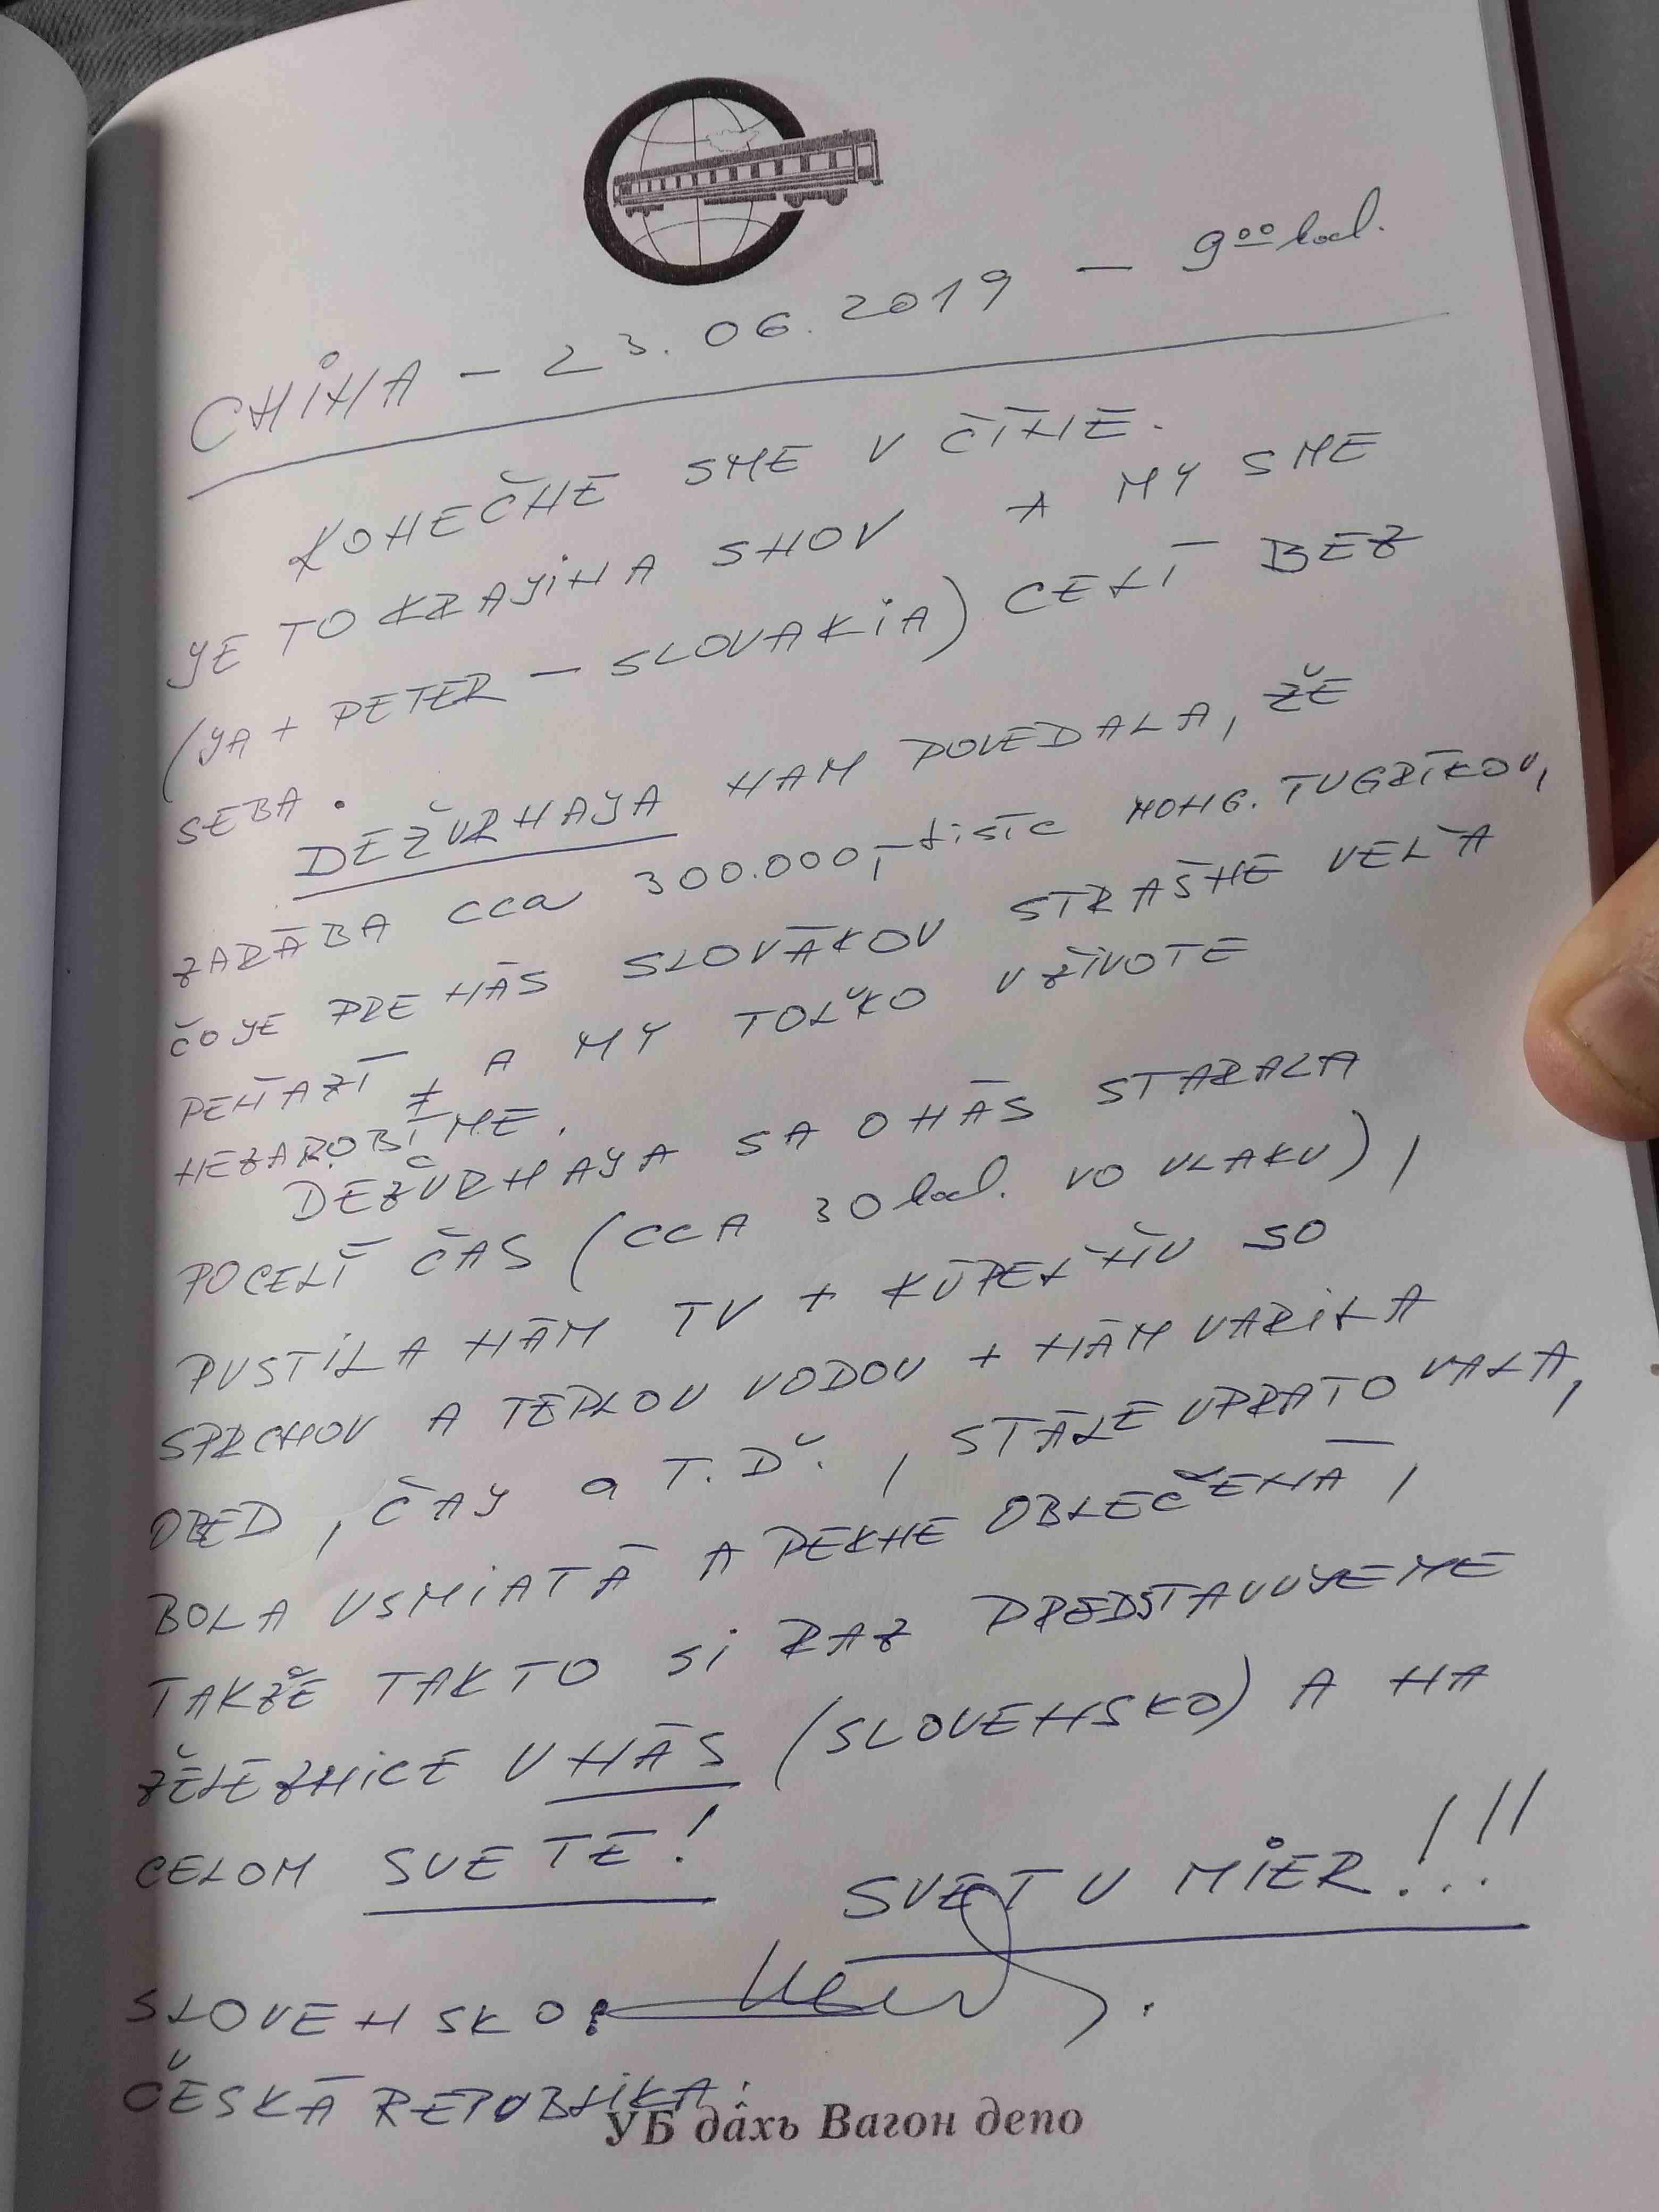 CHiNA – 23.06.2019 – 9⁰⁰ hod.
KONEČNE SME V ČÍNE.
YE TO KRAYiNA SNOV A MY SME
(YA + PETER – SLOVAKiA) CELÍ BEZ
SEBA.
DEŽURNAYA NAM POVEDALA, ŽE
ZARÁBA cca 300.000,- tisíc MONG. TUGRÍKOV,
ČO YE PRE NÁS SLOVÁKOV STRAŠNE VEĽA
PEŇAZÍ A MY TOĽKO V ŽIVOTE
NEZAROBÍME.
DEŽURNAYA SA O NÁS STARALA
POCELÍ ČAS (CCA 30 hod. VO VLAKU),
PUSTiLA NÁM TV + KÚPEĽŇU SO
SPRCHOU A TEPLOU VODOU + NÁM VARiLA
OBED, ČAY a T.Ď., STÁLE UPRATOVALA,
BOLA USMiATÁ A PEKNE OBLEČENÁ,
TAKŽE TAKTO Si RAZ PREDSTAVUYEME
ŽELEZNiCE U NÁS (SLOVENSKO) A NA
CELOM SVETE!
SVETU MiER!!!
SLOVENSKO:
ČESKÁ REPUBLiKA:
УБ дахь Вагон депо